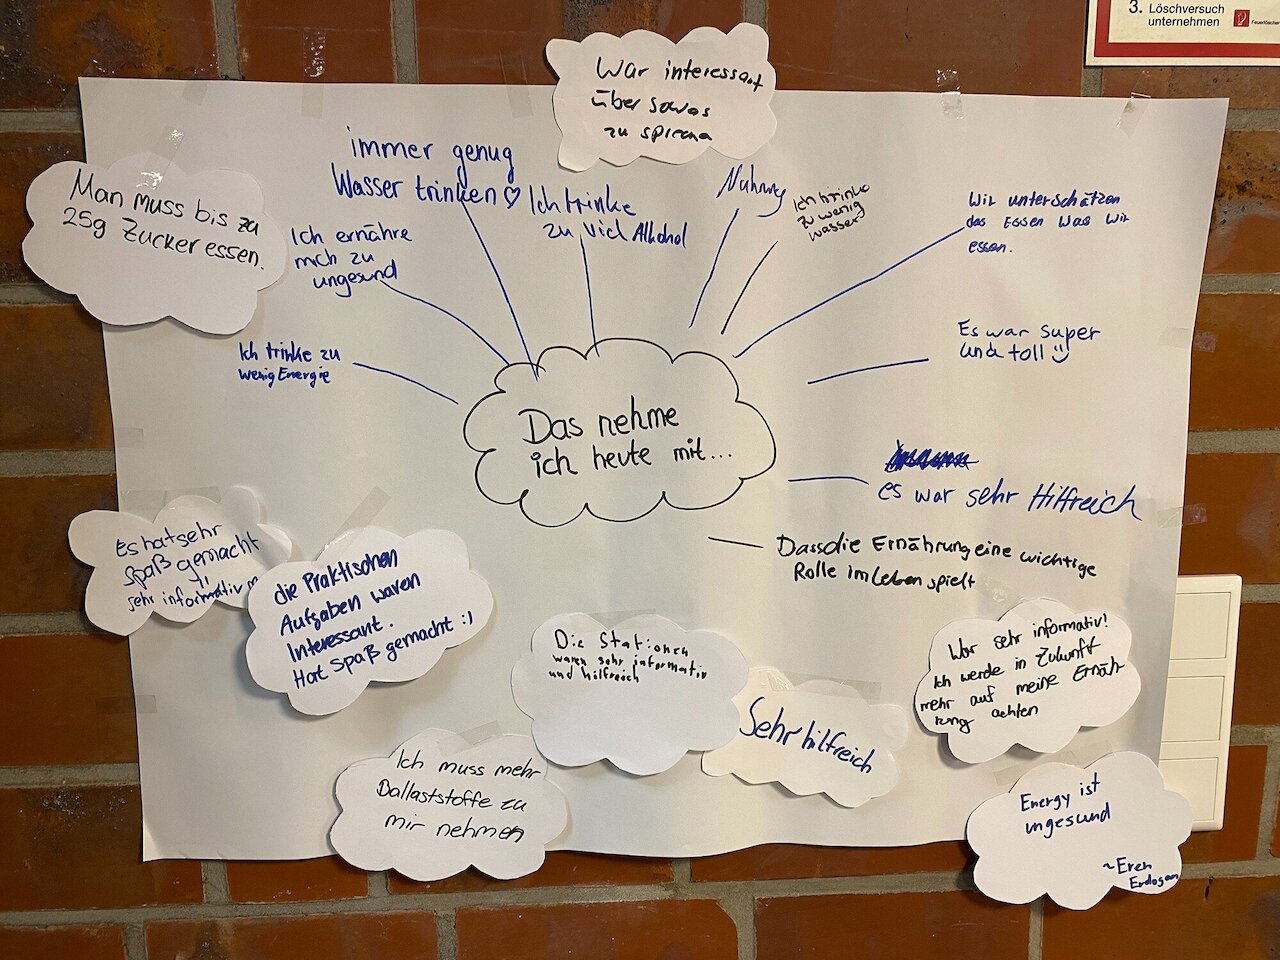 3. Löschversuch
unternehmen
Feuerlöscher
War interessant
über sowas
zu
Man muss bis zu
25g Zucker essen.
immer genug
Wasser trinken ♡
Ich ernähre
mich zu
ungesund
Ich trinke
zu viel Alkohol
Ich trinke
zu wenig
wasser
Wir unterschätzen
das Essen was wir
essen.
Ich trinke zu
wenig Energie
Es war super
und toll
Das nehme
ich heute mit...
es war sehr Hilfreich
Dass die Ernährung eine wichtige
Rolle im Leben spielt
Es hat sehr
Spaß gemacht
sehr informativ
die Praktischen
Aufgaben waren
Interessant.
Hat Spaß gemacht :)
Die Stationen
waren sehr informativ
und hilfreich
War sehr informativ!
Ich werde in Zukunft
mehr auf meine Ernäh-
rung achten
Sehr hilfreich
Ich muss mehr
Ballaststoffe zu
mir nehmen
Energy ist
ungesund
~Eren
Erdogan